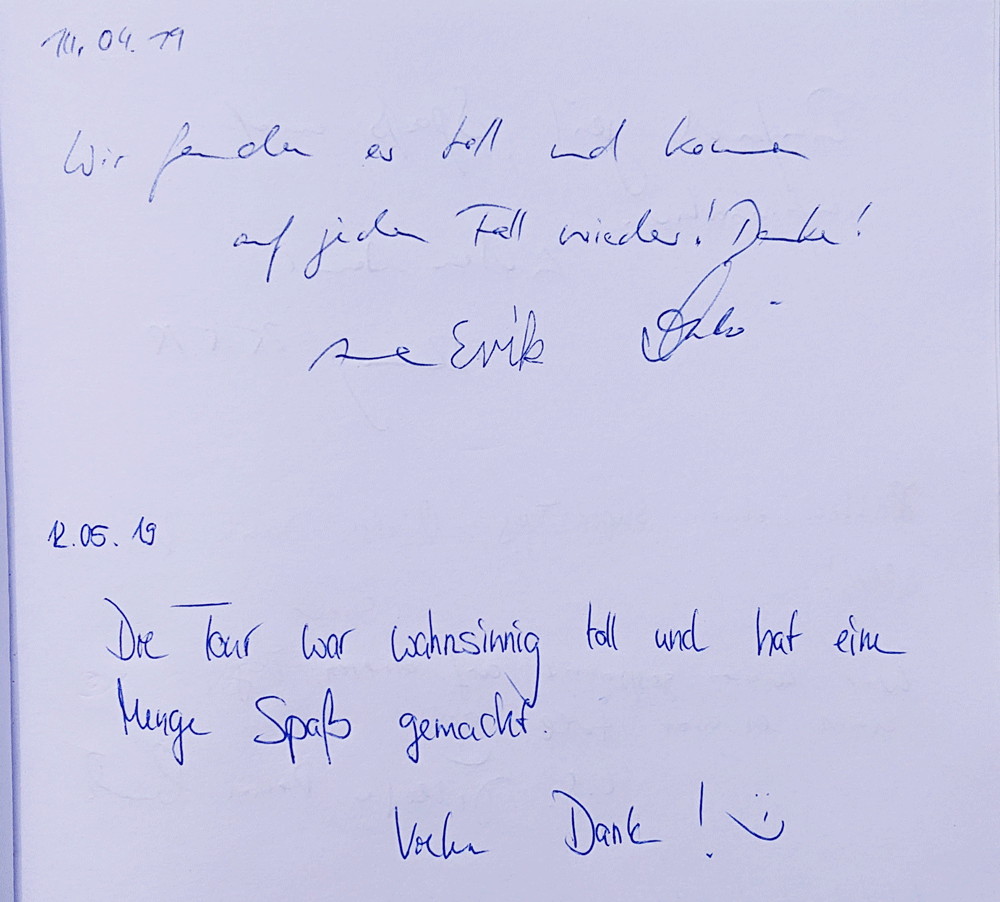 04.19
Wir fanden es toll und kommen
auf jeden Fall wieder! Danke!
Erik
12.05.19
Die Tour war wahnsinnig toll und hat eine
Menge Spaß gemacht.
Vielen Dank! :)